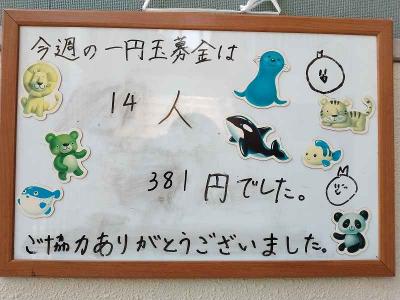 今週の一円玉募金は
14人
381円でした。
ご協力ありがとうございました。